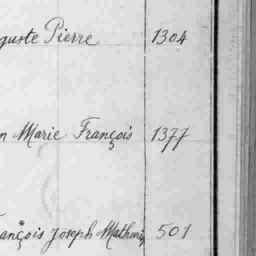 guste Pierre 1304
n Marie François 1377
ançois Joseph Mathurin 501